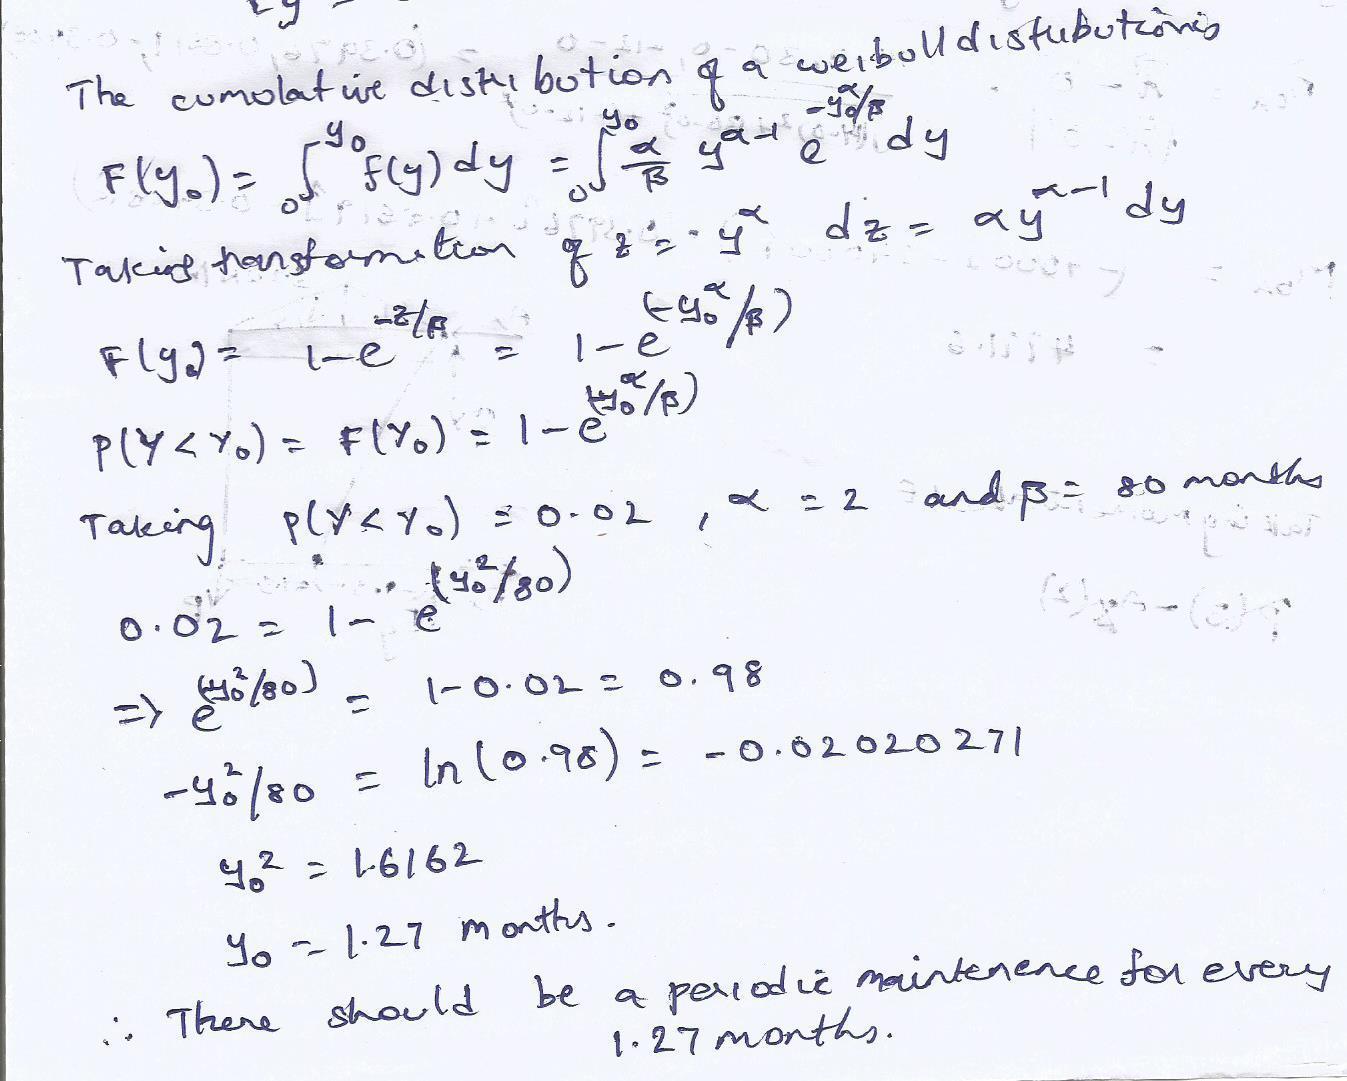 The cumolative distribution of a weibull distubution is
F(y₀) = ∫₀^y₀ f(y) dy = ∫₀^y₀ α/β y^(α-1) e^(-y₀^α/β) dy
Taking transformation of z = y^α dz = αy^(α-1) dy
F(y₀) = 1-e^(-z/β) = 1-e^(-y₀^α/β)
P(Y<Y₀) = F(Y₀) = 1-e^(-y₀^α/β)
Taking P(Y<Y₀) = 0.02 , α = 2 and β = 80 months
0.02 = 1- e^(-y₀²/80)
=> e^(-y₀²/80) = 1-0.02 = 0.98
-y₀²/80 = ln(0.98) = -0.02020271
y₀² = 1.6162
y₀ = 1.27 months.
∴ There should be a periodic maintenence for every
1.27 months.